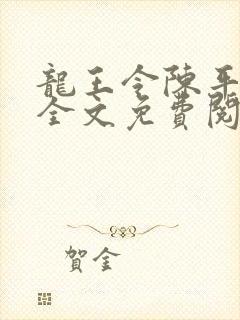 龍王令陳平
全文免費閱
賀金